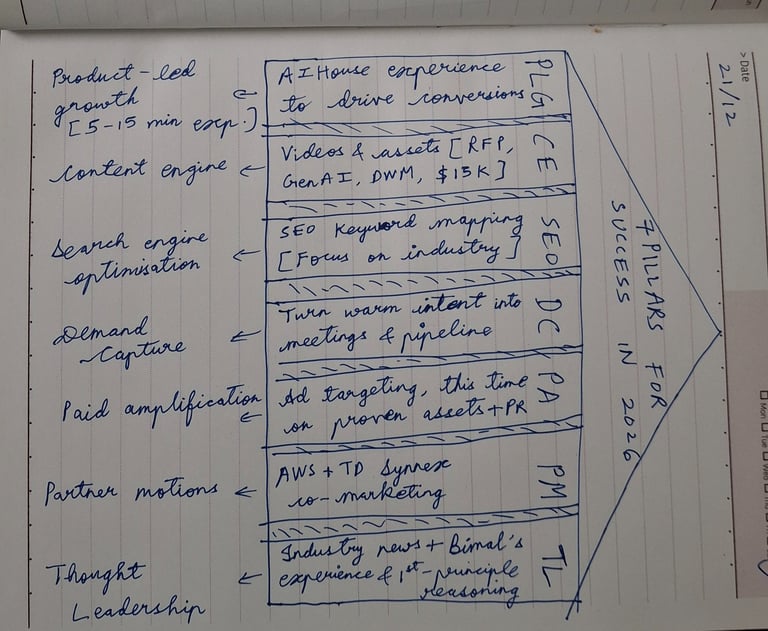 > Date
21/12
7 PILLARS FOR
SUCCESS IN 2026
Product-led
growth
[5-15 min exp.]
AI House experience
to drive conversions
PLG
Content engine
Videos & assets [RFP,
GenAI, DWM, $15K]
CE
Search engine
optimisation
SEO Keyword mapping
[Focus on industry]
SEO
Demand
Capture
Turn warm intent into
meetings & pipeline
DC
Paid amplification
Ad targeting, this time
on proven assets + PR
PA
Partner motions
AWS + TD Synnex
co-marketing
PM
Thought
Leadership
Industry news + Bimal's
experience & 1st-principle
reasoning
TL
Mon Tue Wed